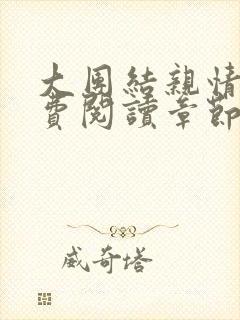 大團結親情
費閱讀章節
威奇塔